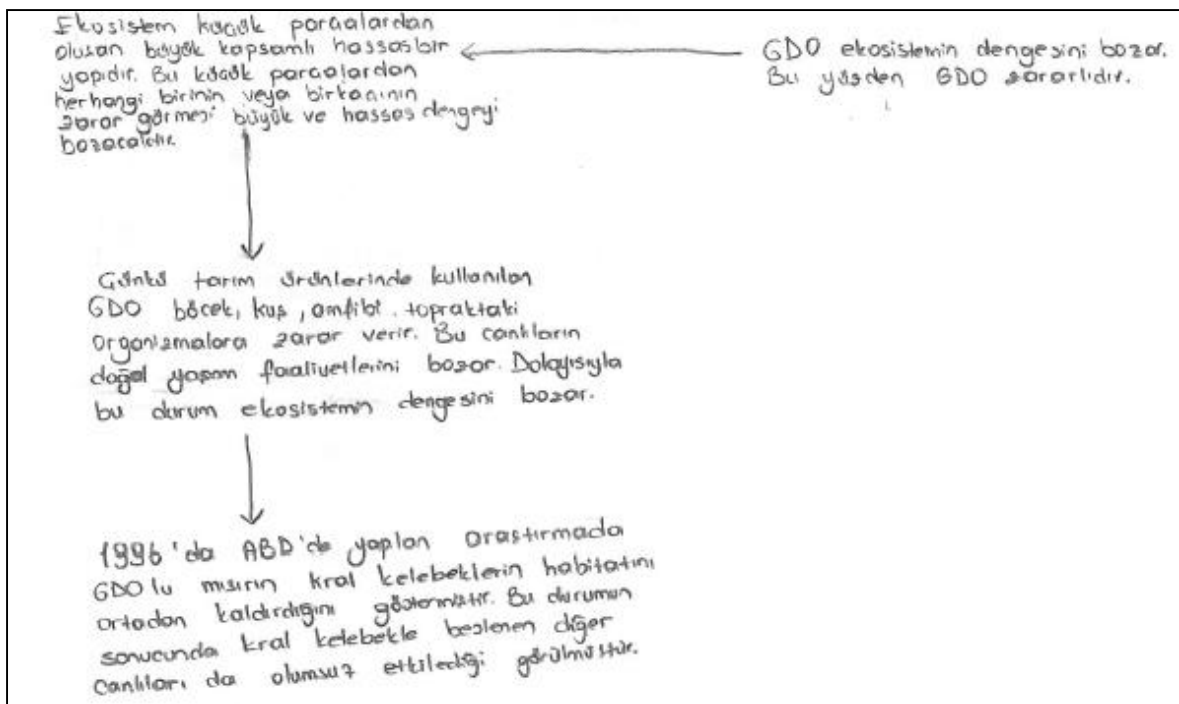 Ekosistem küçük parçalardan
oluşan büyük kapsamlı hassas bir
yapıdır. Bu küçük parçalardan
herhangi birinin veya birkaçının
zarar görmesi büyük ve hassas dengeyi
bozacaktır.
GDO ekosistemin dengesini bozar.
Bu yüzden GDO zararlıdır.
Çünkü tarım ürünlerinde kullanılan
GDO böcek, kuş, amfibi, topraktaki
organizmalara zarar verir. Bu canlıların
doğal yaşam faaliyetlerini bozar. Dolayısıyla
bu durum ekosistemin dengesini bozar.
1996'da ABD'de yapılan araştırmada
GDO lu mısırın kral kelebeklerin habitatını
ortadan kaldırdığını göstermiştir. Bu durumun
sonucunda kral kelebekle beslenen diğer
canlıları da olumsuz etkilediği görülmüştür.